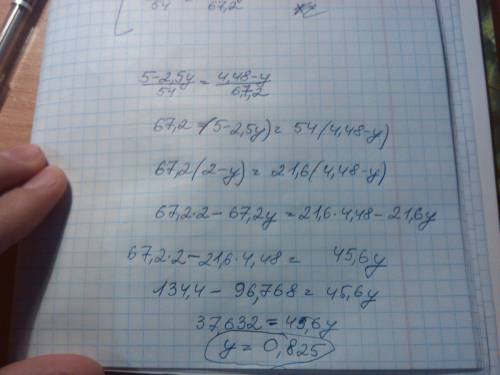 54 67,2
5-2,5y/54 = 4,48-y/67,2
67,2 (5-2,5y) = 54(4,48-y)
67,2(2-y) = 21,6(4,48-y)
67,2·2 - 67,2y = 21,6·4,48 - 21,6y
67,2·2 - 21,6·4,48 = 45,6y
134,4 - 96,768 = 45,6y
37,632 = 45,6y
y = 0,825